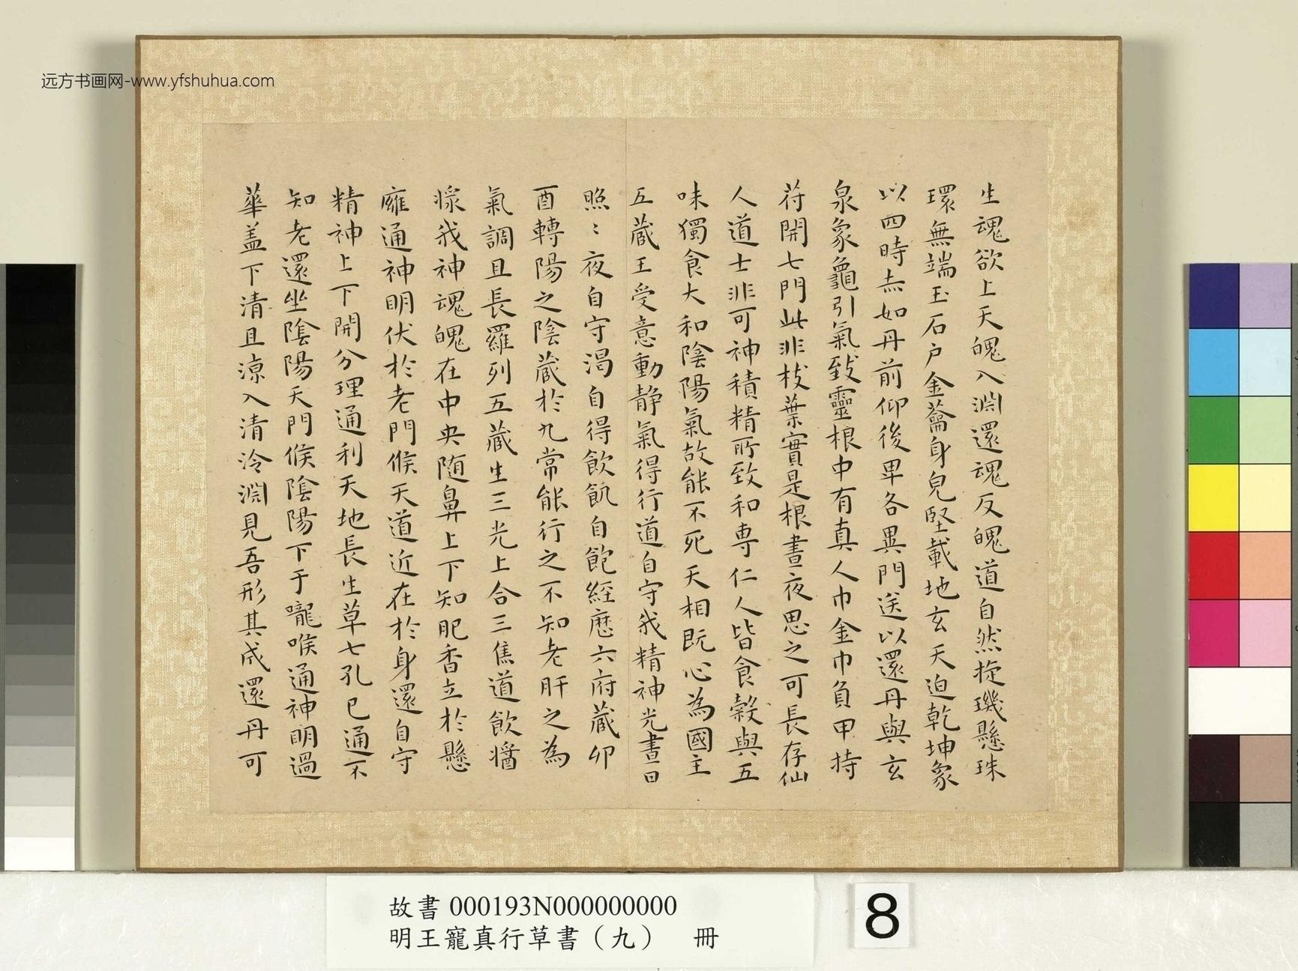 远方书画网-www.yfshuhua.com
生魂欲上天魄入淵還魂反魄道自然旋璣懸珠
環無端玉石戶金蘥身皃堅載地玄天迫乾坤象
以四時赤如丹前仰後卑各異門送以還丹與玄
泉象龜引氣致靈根中有真人巾金巾負甲持
苻開七門此非枝葉實是根晝夜思之可長存仙
人道士非可神積精所致和専仁人皆食穀與五
味獨食大和陰陽氣故能不死天相既心為國主
五蔵王受意動静氣得行道自守我精神光晝日
照〻夜自守渴自得飲飢自飽經歷六府蔵卯
酉轉陽之陰蔵於九常能行之不知老肝之為
氣調且長羅列五蔵生三光上合三焦道飲醬
漿我神魂魄在中央随鼻上下知肥香立於懸
廱通神明伏於老門候天道近在於身還自守
精神上下開分理通利天地長生草七孔已通不
知老還坐陰陽天門候陰陽下于嚨喉通神明過
華盖下清且凉入清泠淵見吾形其成還丹可
故書000193N000000000
明王寵真行草書（九） 冊
8